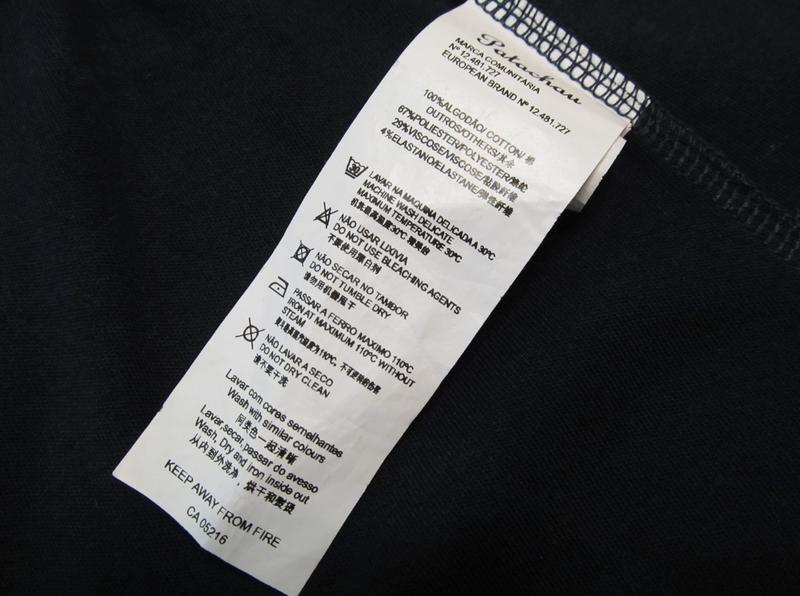 Patachou
MARCA COMUNITARIA
Nº 12.481.727
EUROPEAN BRAND Nº 12.481.727
100%ALGODÃO/ COTTON/ 棉
OUTROS/OTHERS/其余
67%POLIESTER/POLYESTER/涤纶
29%VISCOSE/VISCOSE/粘胶纤维
4%ELASTANO/ELASTANE/弹性纤维
30
LAVAR NA MAQUINA DELICADA A 30ºC
MACHINE WASH DELICATE
MAXIMUM TEMPERATURE 30ºC
机洗最高温度30ºC
NÃO USAR LIXIVIA
DO NOT USE BLEACHING AGENTS
不要使用漂白剂
NÃO SECAR NO TAMBOR
DO NOT TUMBLE DRY
请勿用机器烘干
PASSAR A FERRO MAXIMO 110ºC
IRON AT MAXIMUM 110ºC WITHOUT
STEAM
NÃO LAVAR A SECO
DO NOT DRY CLEAN
请不要干洗
Lavar com cores semelhantes
Wash with similar colours
同类色一起清晰
Lavar,secar,passar do avesso
Wash, Dry and iron inside out
从内到外洗净，烘干和熨烫
KEEP AWAY FROM FIRE
CA 05216